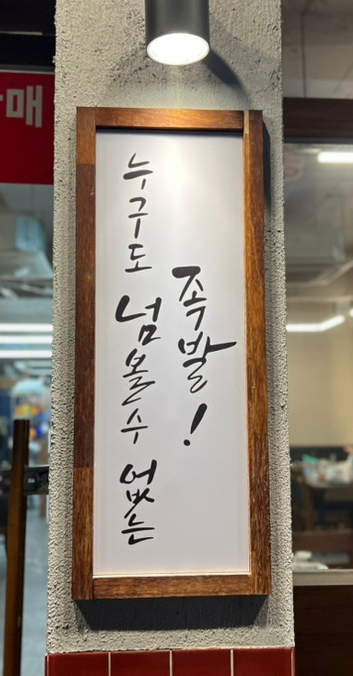 누구도 넘볼수 없는
족발!
매